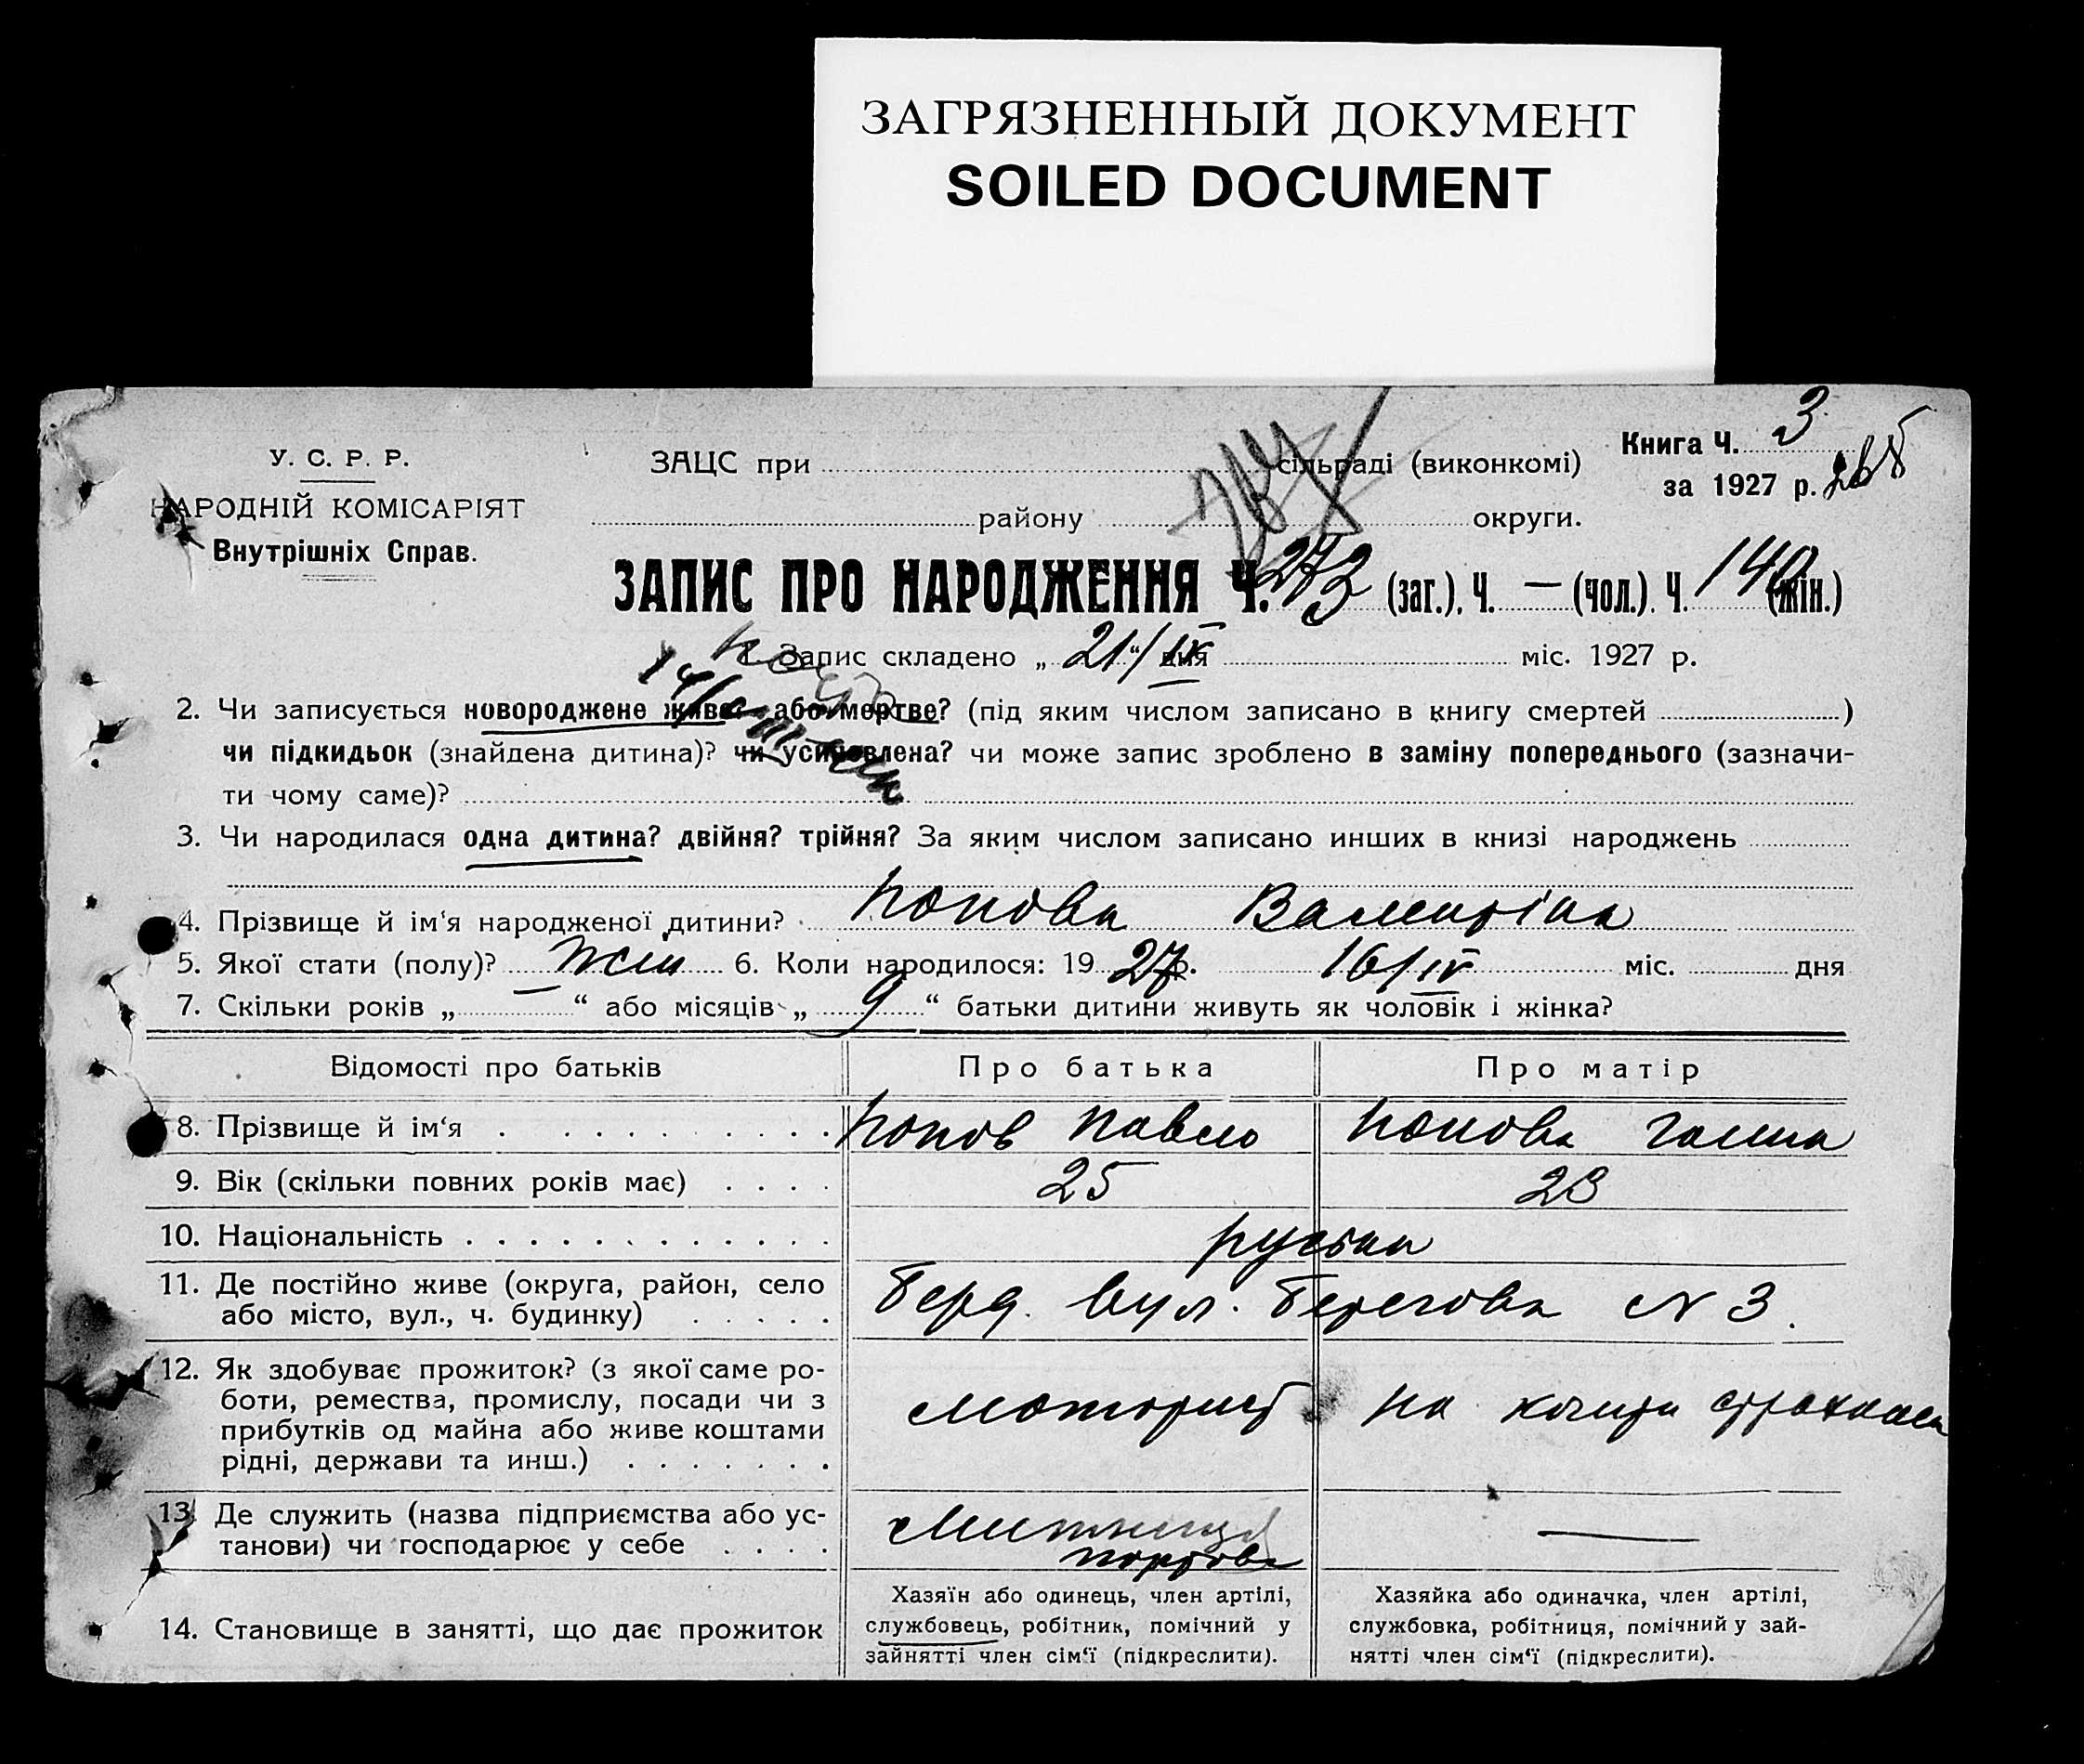 ЗАГРЯЗНЕННЫЙ ДОКУМЕНТ
SOILED DOCUMENT
У. С. Р. Р.
НАРОДНІЙ КОМІСАРІЯТ
Внутрішніх Справ.
ЗАЦС при сільраді (виконкомі)
району округи.
Книга Ч. 3
за 1927 р.
ЗАПИС ПРО НАРОДЖЕННЯ Ч. 273 (заг.). Ч. — (чол.). Ч. 140 (жін.)
1. Запис складено „ 21/IV “ дня міс. 1927 р.
2. Чи записується новороджене живе? або мертве? (під яким числом записано в книгу смертей )
чи підкидьок (знайдена дитина)? чи усиновлена? чи може запис зроблено в заміну попереднього (зазначи-
ти чому саме)?
3. Чи народилася одна дитина? двійня? трійня? За яким числом записано инших в книзі народжень
4. Прізвище й ім‘я народженої дитини? Попова Валентіна
5. Якої стати (полу)? жін 6. Коли народилося: 19 27 р. 16/IV міс. дня
7. Скільки років „ “ або місяців „ 9 “ батьки дитини живуть як чоловік і жінка?
Відомості про батьків Про батька Про матір
8. Прізвище й ім‘я Попов Павло Попова Ганна
9. Вік (скільки повних років має) 25 23
10. Національність руськи
11. Де постійно живе (округа, район, село
або місто, вул., ч. будинку) Берд. вул. Берегова N 3.
12. Як здобуває прожиток? (з якої саме ро-
боти, ремества, промислу, посади чи з
прибутків од майна або живе коштами
рідні, держави та инш.) моторист на кошти
13. Де служить (назва підприємства або ус-
танови) чи господарює у себе Митниця портова —
14. Становище в занятті, що дає прожиток
Хазяїн або одинець, член артілі,
службовець, робітник, помічний у
зайнятті член сім‘ї (підкреслити).
Хазяйка або одиначка, член артілі,
службовка, робітниця, помічний у зай-
нятті член сім‘ї (підкреслити).